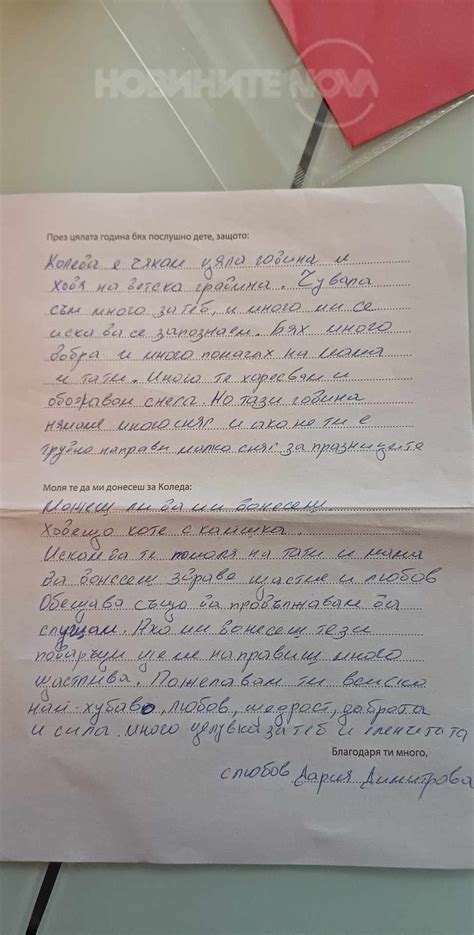 НОВИНИТЕ NOVA
През цялата година бях послушно дете, защото:
Коледа е чакам цяла година и
ходя на детска градина. Чувала
съм много за теб, и много ми се
иска да се запознаем. Бях много
добра и много помагах на мама
и тати. Много те харесвам и
обожавам снега. Но тази година
нямаме много сняг и ако не ти е
трудно направи малко сняг за празниците
Моля те да ми донесеш за Коледа:
Можеш ли да ми донесеш
Ходещо коте с каишка.
Искам да те помоля на тати и мама
да донесеш здраве щастие и любов
Обещава също да продължавам да
слушам. Ако ми донесеш тези
подаръци ще ме направиш много
щастлива. Пожелавам ти всичко
най-хубаво, любов, щедрост, доброта
и сила. много целувки за теб и еленчетата
Благодаря ти много,
с любов Дария Димитрова